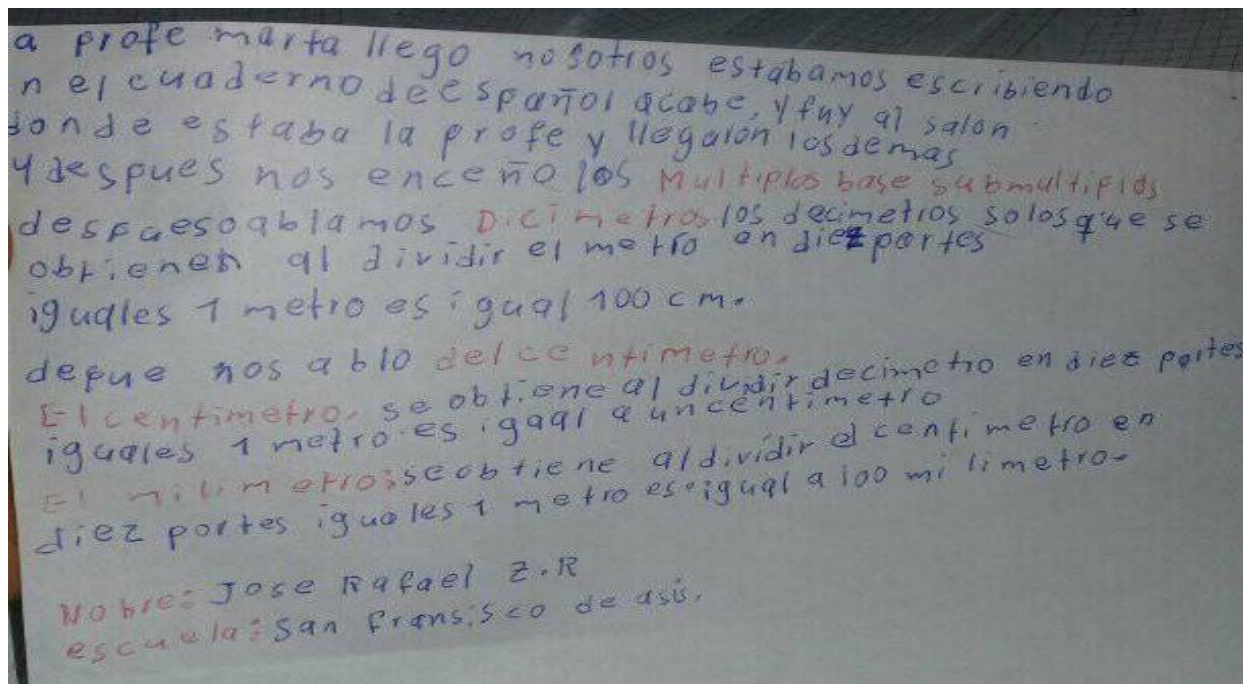 a profe marta llego nosotros estabamos escribiendo
n el cuaderno de español acabe, y fuy al salon
donde estaba la profe y llegaron los demas
y despues nos enceño los Multiplos base submultiplos
despues oablamos Dicimetros los decimetros solos que se
obtienen al dividir el metro en diez partes
iguales 1 metro es igual 100 cm.
depue nos ablo del centimetro.
El centimetro. se obtiene al dividir decimetro en diez partes
iguales 1 metro es igaal a un centimetro
El milimetro: se obtiene al dividir el centimetro en
diez partes iguales 1 metro es igual a 100 milimetro.
Nobre: Jose Rafael Z.R
escuela: San Fransisco de asis.